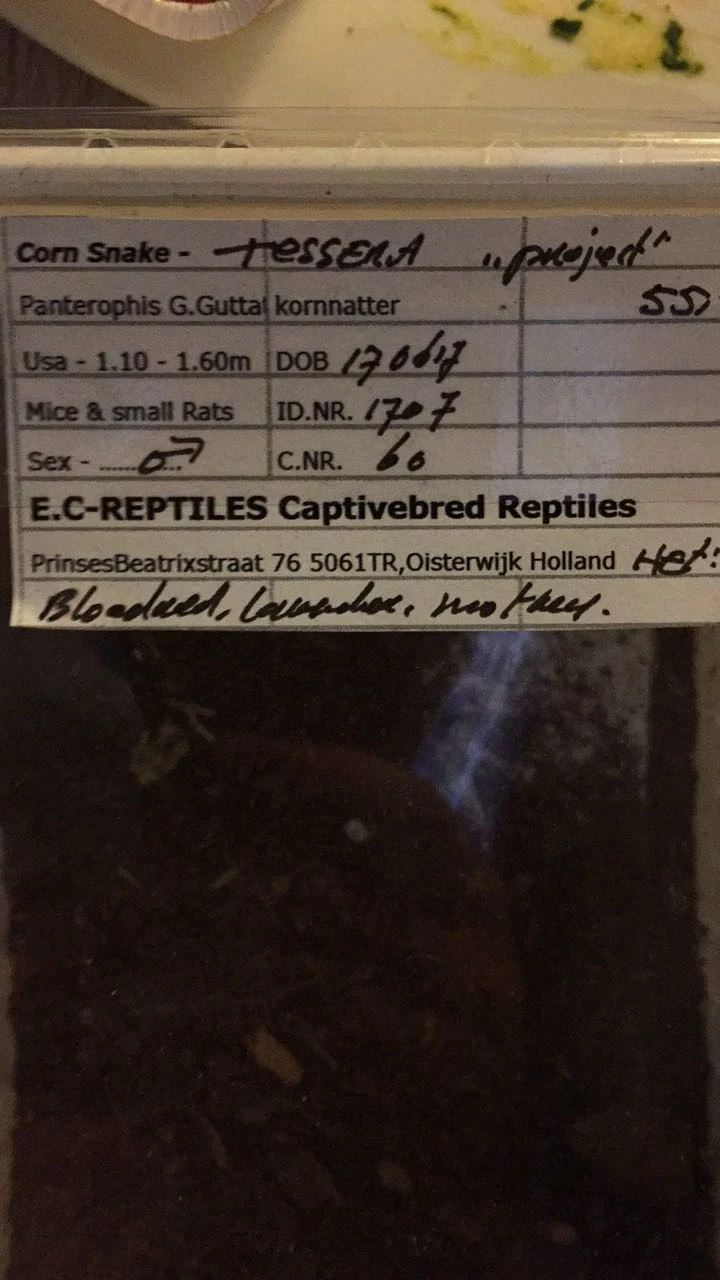 Corn Snake - tESSERA „project"
Panterophis G.Guttat kornnatter 55,
Usa - 1.10 - 1.60m DOB 170617
Mice & small Rats ID.NR. 1707
Sex - ......♂.. C.NR. 60
E.C-REPTILES Captivebred Reptiles
PrinsesBeatrixstraat 76 5061TR,Oisterwijk Holland Het:
Bloodred, lavender, motley.